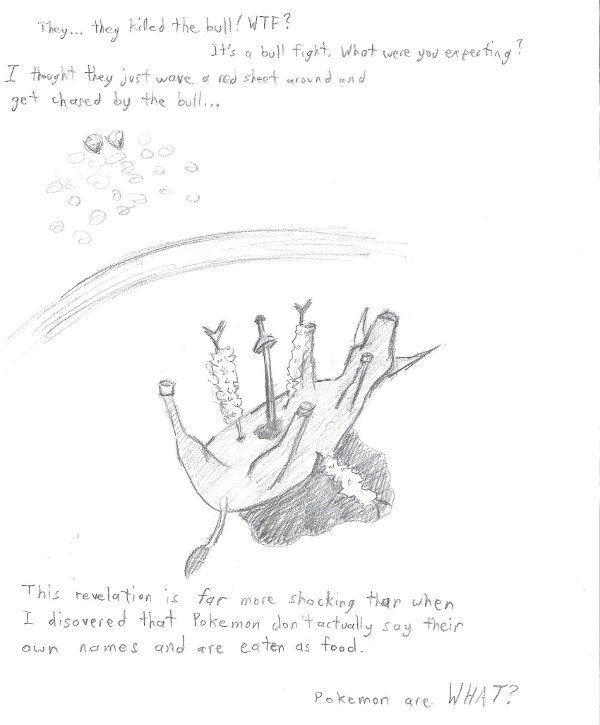 They... they killed the bull! WTF?
It's a bull fight. What were you expecting?
I thought they just wave a red sheet around and
get chased by the bull...
This revelation is far more shocking than when
I disovered that Pokemon don't actually say their
own names and are eaten as food.
Pokemon are WHAT?